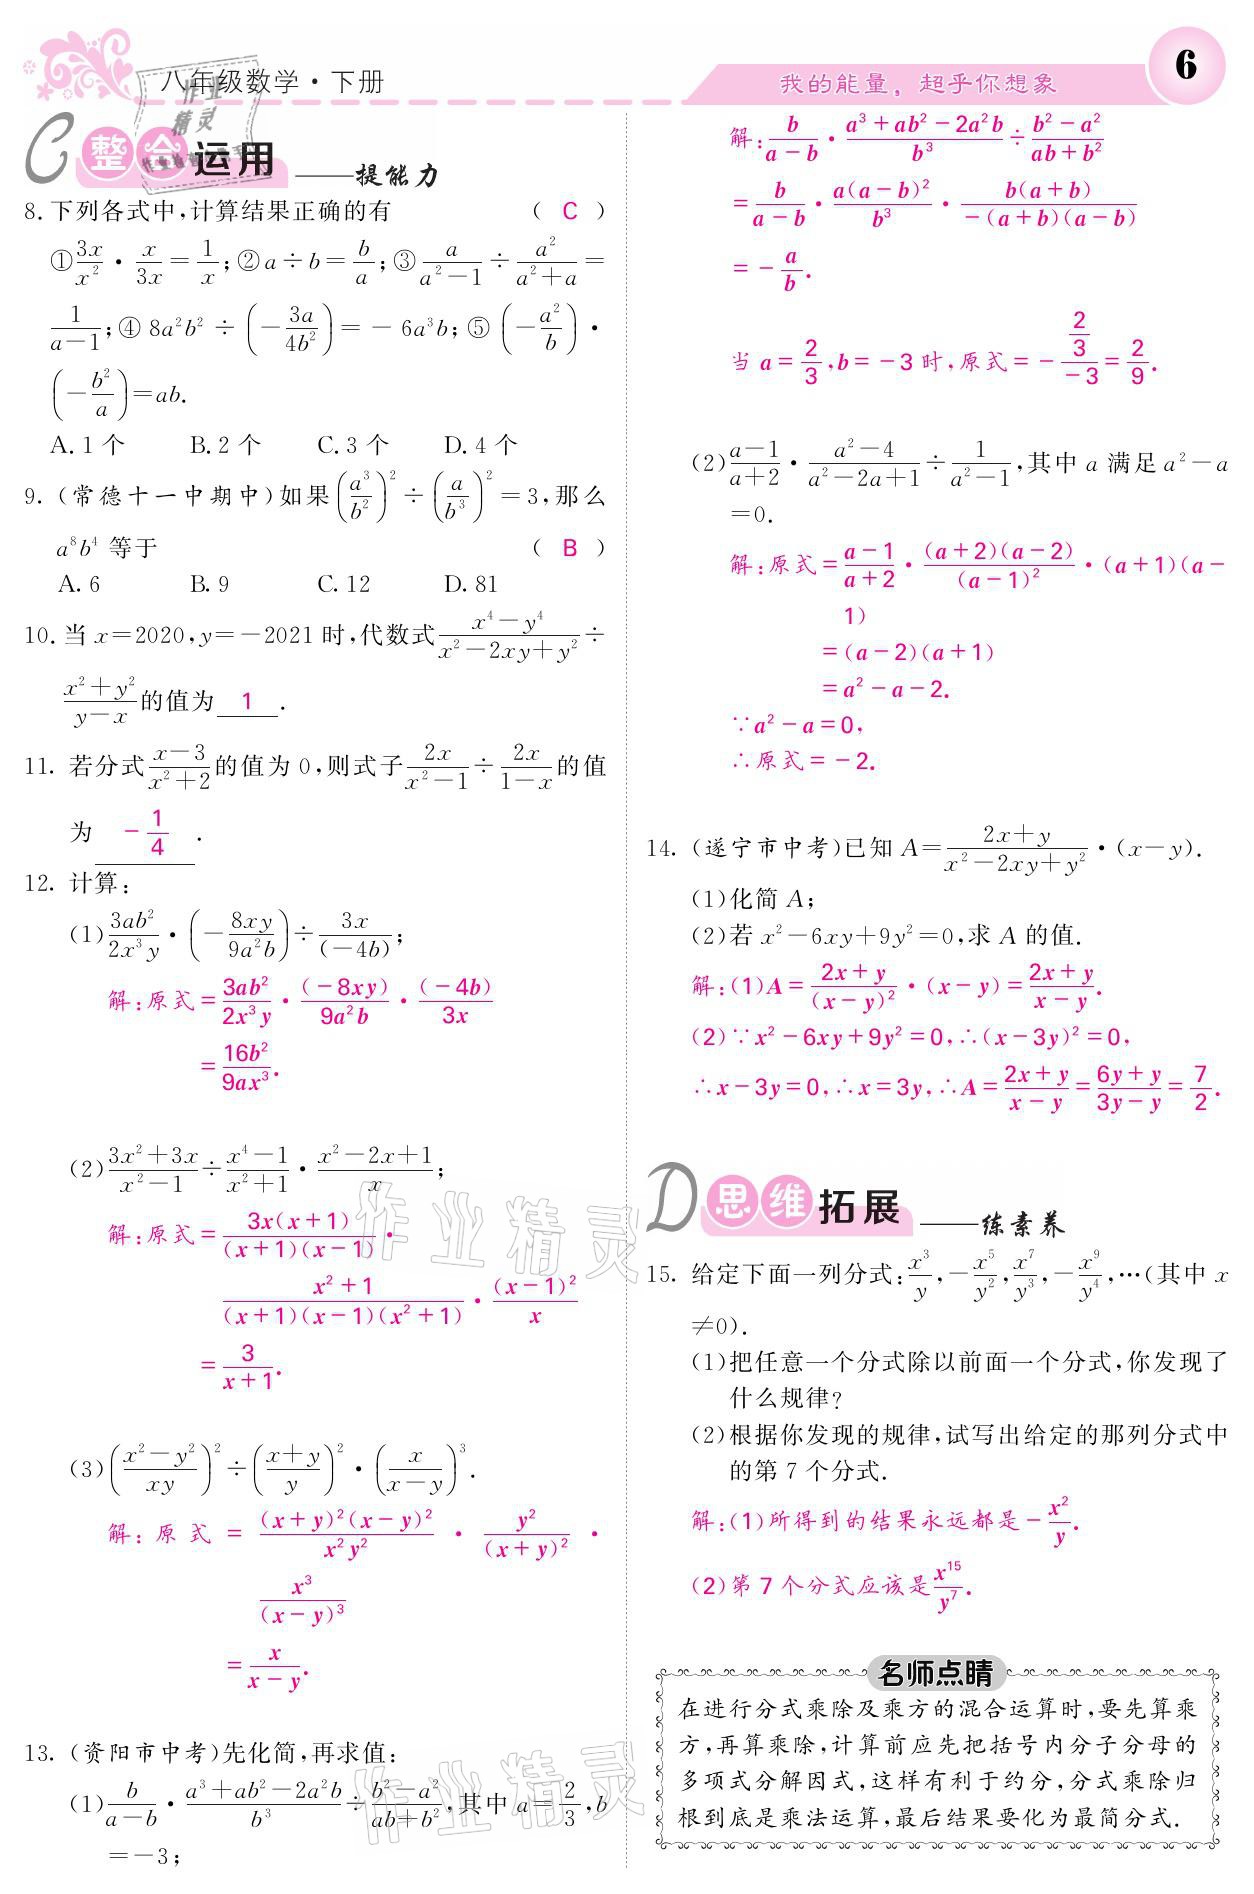 八年级数学·下册
我的能量，超乎你想象
6
C 整合运用 ——提能力
8. 下列各式中,计算结果正确的有 ( C )
①3x/x²·x/3x=1/x;②a÷b=b/a;③a/(a²-1)÷a²/(a²+a)=
1/(a-1);④8a²b²÷(-3a/4b²)=-6a³b;⑤(-a²/b)·
(-b²/a)=ab.
A. 1个 B. 2个 C. 3个 D. 4个
9. (常德十一中期中)如果(a³/b²)²÷(a/b³)²=3,那么
a⁸b⁴等于 ( B )
A. 6 B. 9 C. 12 D. 81
10. 当x=2020,y=-2021时,代数式(x⁴-y⁴)/(x²-2xy+y²)÷
(x²+y²)/(y-x)的值为 1 .
11. 若分式(x-3)/(x²+2)的值为0,则式子2x/(x²-1)÷2x/(1-x)的值
为 -1/4 .
12. 计算:
(1)3ab²/2x³y·(-8xy/9a²b)÷3x/(-4b);
解:原式=3ab²/2x³y·(-8xy)/9a²b·(-4b)/3x
=16b²/9ax³.
(2)(3x²+3x)/(x²-1)÷(x⁴-1)/(x²+1)·(x²-2x+1)/x;
解:原式=3x(x+1)/(x+1)(x-1)·
(x²+1)/(x+1)(x-1)(x²+1)·(x-1)²/x
=3/(x+1).
(3)((x²-y²)/xy)²÷((x+y)/y)²·(x/(x-y))³.
解:原式=(x+y)²(x-y)²/x²y²·y²/(x+y)²·
x³/(x-y)³
=x/(x-y).
13. (资阳市中考)先化简,再求值:
(1)b/(a-b)·(a³+ab²-2a²b)/b³÷(b²-a²)/(ab+b²),其中a=2/3,b
=-3;
解:b/(a-b)·(a³+ab²-2a²b)/b³÷(b²-a²)/(ab+b²)
=b/(a-b)·a(a-b)²/b³·b(a+b)/-(a+b)(a-b)
=-a/b.
当a=2/3,b=-3时,原式=-(2/3)/(-3)=2/9.
(2)(a-1)/(a+2)·(a²-4)/(a²-2a+1)÷1/(a²-1),其中a满足a²-a
=0.
解:原式=(a-1)/(a+2)·(a+2)(a-2)/(a-1)²·(a+1)(a-
1)
=(a-2)(a+1)
=a²-a-2.
∵a²-a=0,
∴原式=-2.
14. (遂宁市中考)已知A=(2x+y)/(x²-2xy+y²)·(x-y).
(1)化简A;
(2)若x²-6xy+9y²=0,求A的值.
解:(1)A=(2x+y)/(x-y)²·(x-y)=(2x+y)/(x-y).
(2)∵x²-6xy+9y²=0,∴(x-3y)²=0,
∴x-3y=0,∴x=3y,∴A=(2x+y)/(x-y)=(6y+y)/(3y-y)=7/2.
D 思维拓展 ——练素养
15. 给定下面一列分式:x³/y,-x⁵/y²,x⁷/y³,-x⁹/y⁴,…(其中x
≠0).
(1)把任意一个分式除以前面一个分式,你发现了
什么规律?
(2)根据你发现的规律,试写出给定的那列分式中
的第7个分式.
解:(1)所得到的结果永远都是-x²/y.
(2)第7个分式应该是x¹⁵/y⁷.
名师点睛
在进行分式乘除及乘方的混合运算时,要先算乘
方,再算乘除,计算前应先把括号内分子分母的
多项式分解因式,这样有利于约分,分式乘除归
根到底是乘法运算,最后结果要化为最简分式.
作业精灵
作业精灵
作业精灵